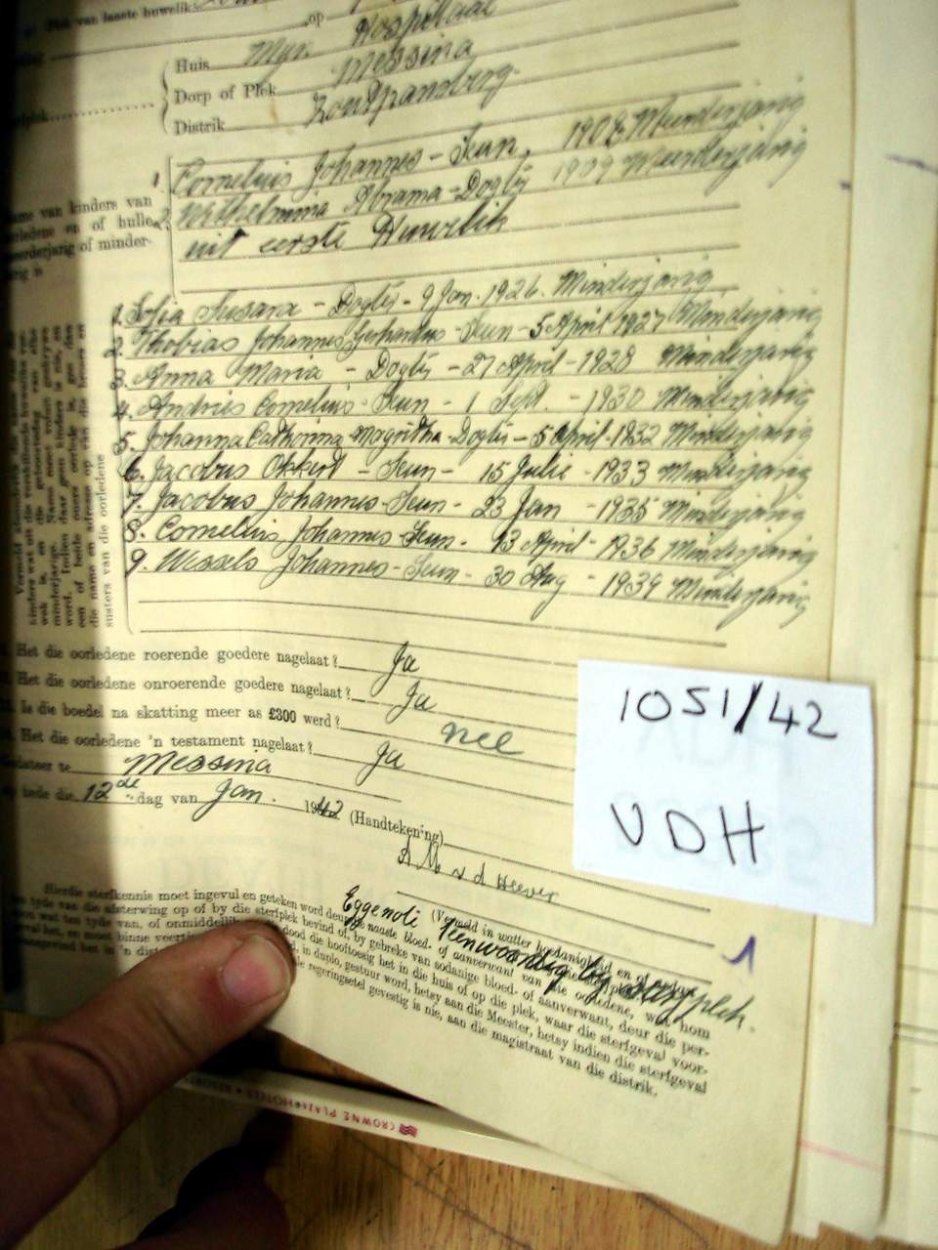 van laaste huwelik
op
Hospitaal
Huis Myn
Dorp of Plek Messina
Distrik Zoutpansberg
1 Cornelius Johannes - Seun, 1908 Meerderjarig
2. Wilhelmina Abrama - Dogter 1909 Meerderjarig
uit eerste Huwelik
name van kinders van
en of hulle
meerderjarig of minder-
jarig is
1. Sofia Susara - Dogter - 9 Jan. 1926. Minderjarig
2. Thobias Johannes Gerhardus - Seun - 5 April 1927 Minderjarig
3. Anna Maria - Dogter - 27 April - 1928 Minderjarig
4. Andries Cornelius - Seun - 1 Sept. - 1930 Minderjarig
5. Johanna Cathrina Magritha - Dogter - 5 April - 1932 Minderjarig
6. Jacobus Okkert - Seun - 15 Julie - 1933 Minderjarig
7. Jacobus Johannes - Seun - 23 Jan - 1935 Minderjarig
8. Cornelius Johannes - Seun - 13 April - 1936 Minderjarig
9. Wessels Johannes - Seun - 30 Aug - 1939 Minderjarig
Het die oorledene roerende goedere nagelaat? Ja
Het die oorledene onroerende goedere nagelaat? Ja
Is die boedel na skatting meer as £300 werd? nee
Het die oorledene 'n testament nagelaat? Ja
te Messina
hede die 12de dag van Jan. 1942
(Handtekening)
A M v d Heever
(Vermeld in watter hoedanigheid en of
Eggenote Teenwoordig by sterfplek.
Hierdie sterfkennis moet ingevul en geteken word deur die naaste bloed- of aanverwant van die oorledene, wat hom
ten tyde van die afsterwing op of by die sterfplek bevind of, by gebreke van sodanige bloed- of aanverwant, deur die per-
soon wat ten tyde van, of onmiddellik dood die hooftoesig het in die huis of op die plek, waar die sterfgeval voor-
val het, en moet binne veertien in duplo, gestuur word, hetsy aan die Meester, hetsy indien die sterfgeval
die regeringsetel gevestig is nie, aan die magistraat van die distrik.
1051/42
VDH
1
CROWNE PLAZA • HOTELS • RESORTS